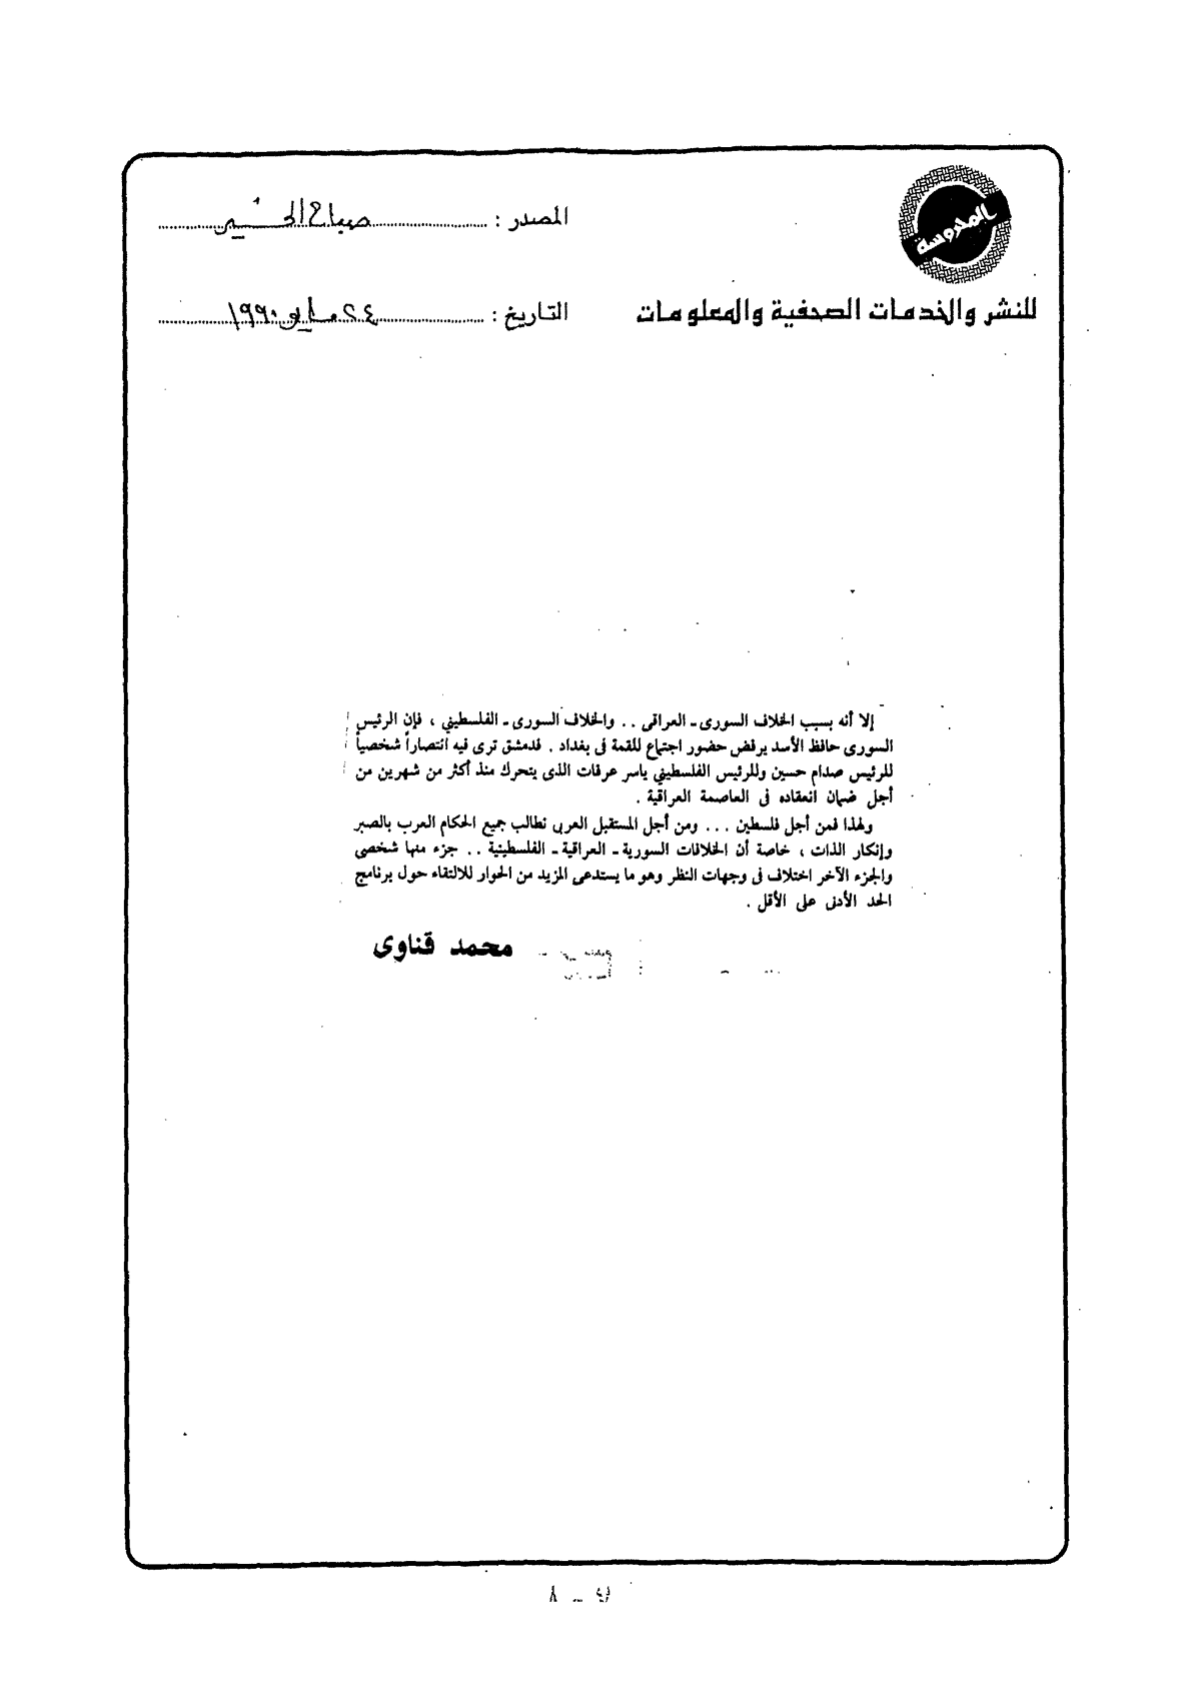 المحروسة
للنشر والخدمات الصحفية والمعلومات
المصدر : صباح الخير
التاريخ : ٢٤ مايو ١٩٩٠
إلا أنه بسبب الخلاف السورى ـ العراقى . . والخلاف السورى ـ الفلسطيني ، فإن الرئيس
السورى حافظ الأسد يرفض حضور اجتماع للقمة فى بغداد . فدمشق ترى فيه انتصاراً شخصياً
للرئيس صدام حسين وللرئيس الفلسطيني ياسر عرفات الذى يتحرك منذ أكثر من شهرين من
أجل ضمان انعقاده فى العاصمة العراقية .
ولهذا فمن أجل فلسطين . . . ومن أجل المستقبل العربى نطالب جميع الحكام العرب بالصبر
وإنكار الذات ، خاصة أن الخلافات السورية ـ العراقية ـ الفلسطينية . . جزء منها شخصى
والجزء الآخر اختلاف فى وجهات النظر وهو ما يستدعى المزيد من الحوار للالتقاء حول برنامج
الحد الأدنى على الأقل .
محمد قناوى